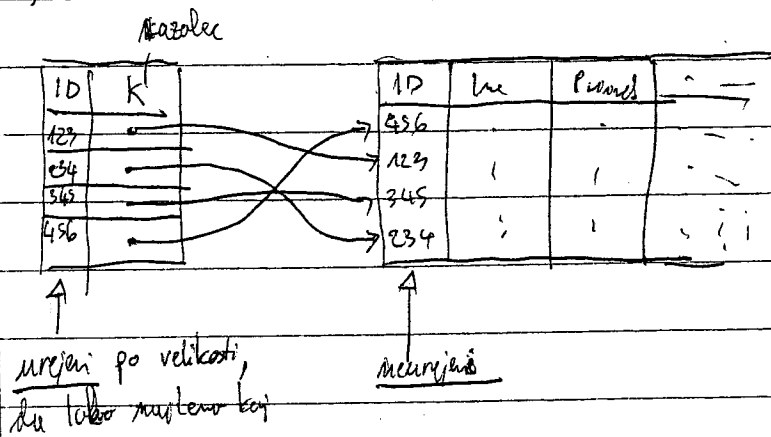 kazalec
ID K
123
234
345
456
ID Ime Priimek
456
123
345
234
urejeni po velikosti,
da lahko najdemo kaj
neurejeni